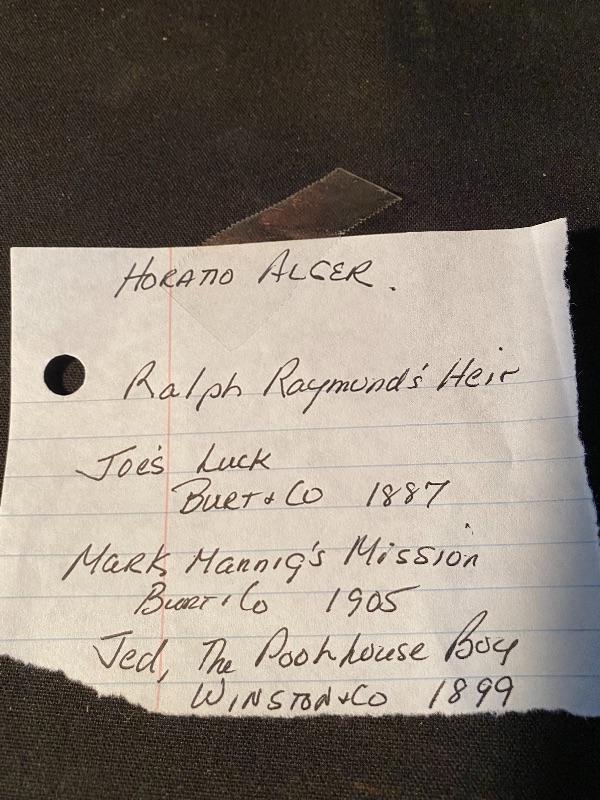 HORATIO ALGER.
Ralph Raymond's Heir
Joe's Luck
BURT & CO 1887
Mark Mannig's Mission
Burt & Co 1905
Jed, The Poohhouse Boy
WINSTON & CO 1899